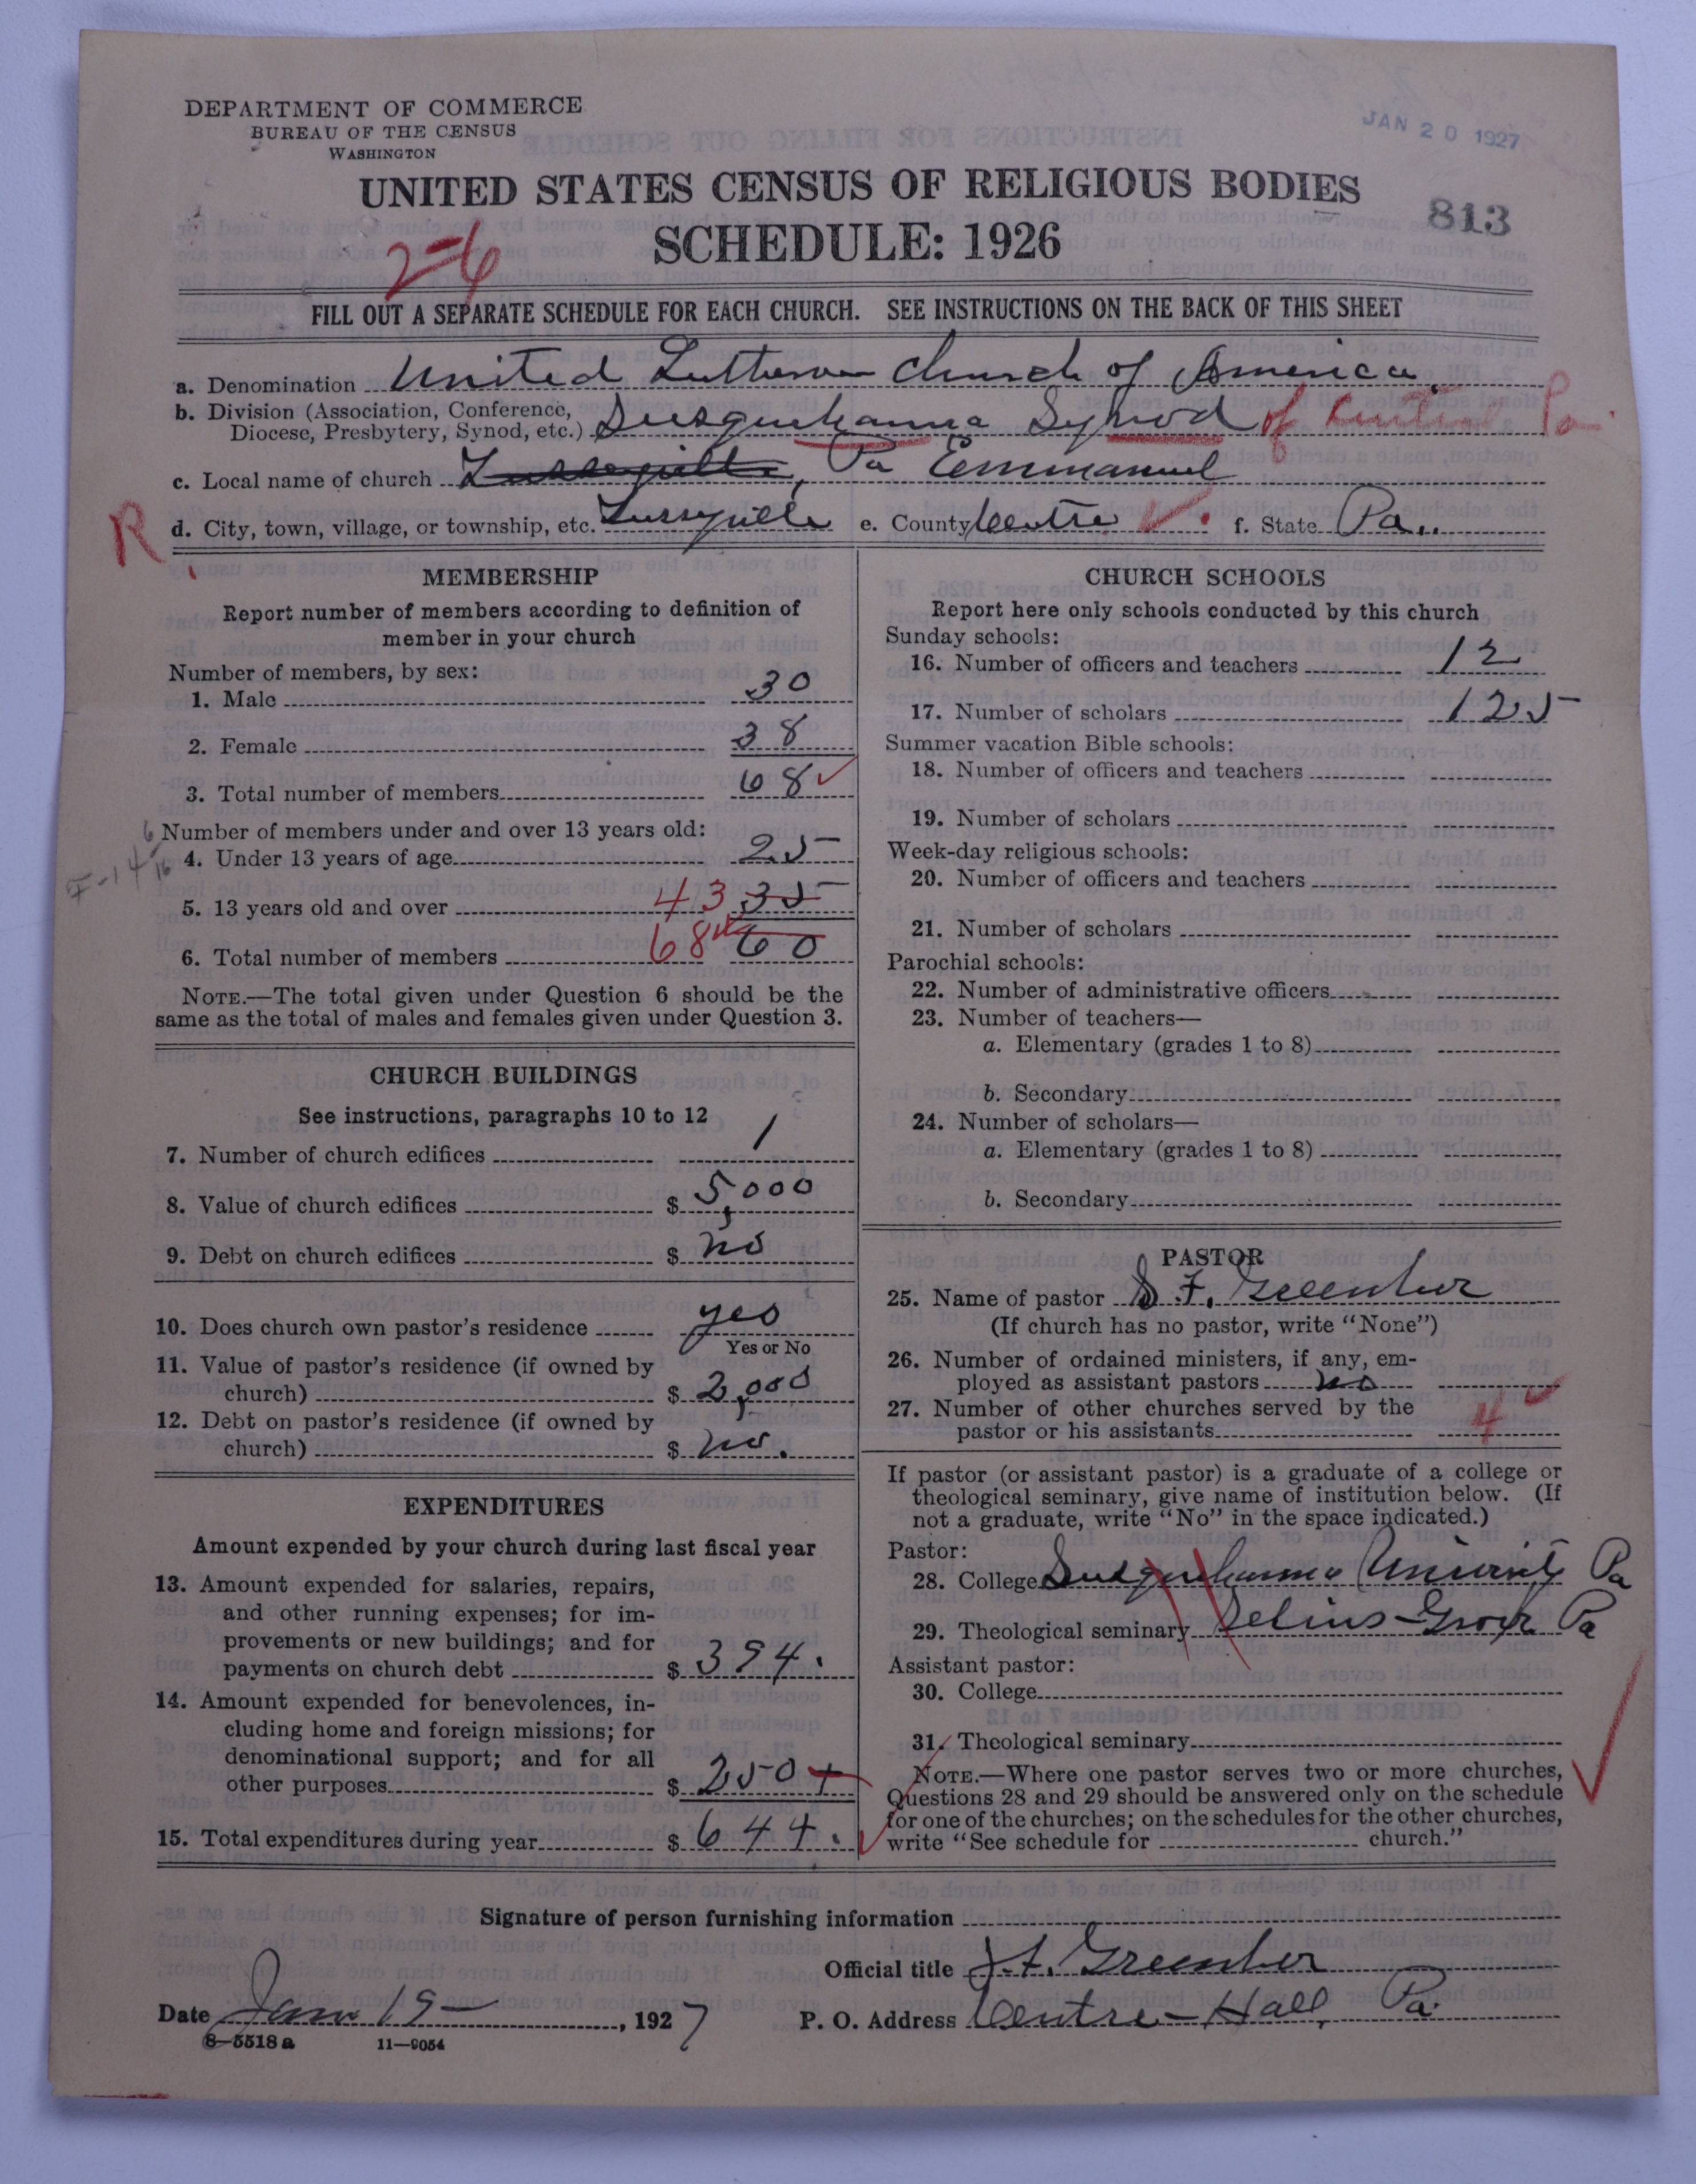 DEPARTMENT OF COMMERCE
BUREAU OF THE CENSUS
WASHINGTON
JAN 20 1927
UNITED STATES CENSUS OF RELIGIOUS BODIES
813
SCHEDULE: 1926
2-6
FILL OUT A SEPARATE SCHEDULE FOR EACH CHURCH. SEE INSTRUCTIONS ON THE BACK OF THIS SHEET
a. Denomination United Lutheran Church of America
b. Division (Association, Conference,
Diocese, Presbytery, Synod, etc.) Susquehanna Synod of Central Pa.
c. Local name of church Pa Emmanuel
R
d. City, town, village, or township, etc. Tusseyville e. County Centre f. State Pa.
MEMBERSHIP
Report number of members according to definition of
member in your church
Number of members, by sex:
1. Male 30
2. Female 38
3. Total number of members 68
Number of members under and over 13 years old:
4. Under 13 years of age 25
5. 13 years old and over 43 35
6. Total number of members 68 60
NOTE.—The total given under Question 6 should be the
same as the total of males and females given under Question 3.
CHURCH BUILDINGS
See instructions, paragraphs 10 to 12
7. Number of church edifices 1
8. Value of church edifices $ 5,000
9. Debt on church edifices $ no
10. Does church own pastor's residence yes
Yes or No
11. Value of pastor's residence (if owned by
church) $ 2,000
12. Debt on pastor's residence (if owned by
church) $ no.
EXPENDITURES
Amount expended by your church during last fiscal year
13. Amount expended for salaries, repairs,
and other running expenses; for im-
provements or new buildings; and for
payments on church debt $ 394.
14. Amount expended for benevolences, in-
cluding home and foreign missions; for
denominational support; and for all
other purposes $ 250
15. Total expenditures during year $ 644.
CHURCH SCHOOLS
Report here only schools conducted by this church
Sunday schools:
16. Number of officers and teachers 12
17. Number of scholars 125
Summer vacation Bible schools:
18. Number of officers and teachers
19. Number of scholars
Week-day religious schools:
20. Number of officers and teachers
21. Number of scholars
Parochial schools:
22. Number of administrative officers
23. Number of teachers—
a. Elementary (grades 1 to 8)
b. Secondary
24. Number of scholars—
a. Elementary (grades 1 to 8)
b. Secondary
PASTOR
25. Name of pastor S. F. Greenhoe
(If church has no pastor, write "None")
26. Number of ordained ministers, if any, em-
ployed as assistant pastors no
27. Number of other churches served by the
pastor or his assistants 4
If pastor (or assistant pastor) is a graduate of a college or
theological seminary, give name of institution below. (If
not a graduate, write "No" in the space indicated.)
Pastor:
28. College Susquehanna University Pa
29. Theological seminary Selins-Grove Pa
Assistant pastor:
30. College
31. Theological seminary
NOTE.—Where one pastor serves two or more churches,
Questions 28 and 29 should be answered only on the schedule
for one of the churches; on the schedules for the other churches,
write "See schedule for church."
Signature of person furnishing information
Official title
Date Jan 19 , 1927 P. O. Address Centre-Hall, Pa.
8-5518 a 11-9054